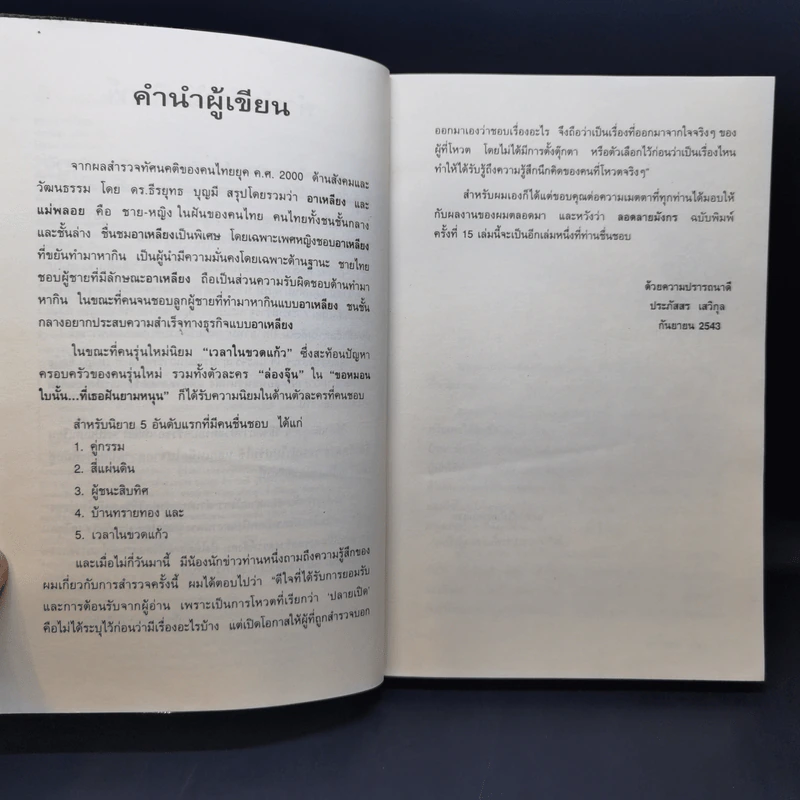 คำนำผู้เขียน
จากผลสำรวจทัศนคติของคนไทยยุค ค.ศ. 2000 ด้านสังคมและ
วัฒนธรรม โดย ดร.ธีรยุทธ บุญมี สรุปโดยรวมว่า อาเหลียง และ
แม่พลอย คือ ชาย-หญิง ในฝันของคนไทย คนไทยทั้งชนชั้นกลาง
และชั้นล่าง ชื่นชมอาเหลียงเป็นพิเศษ โดยเฉพาะเพศหญิงชอบอาเหลียง
ที่ขยันทำมาหากิน เป็นผู้นำมีความมั่นคงโดยเฉพาะด้านฐานะ ชายไทย
ชอบผู้ชายที่มีลักษณะอาเหลียง ถือเป็นส่วนความรับผิดชอบด้านทำมา
หากิน ในขณะที่คนจนชอบลูกผู้ชายที่ทำมาหากินแบบอาเหลียง ชนชั้น
กลางอยากประสบความสำเร็จทางธุรกิจแบบอาเหลียง
ในขณะที่คนรุ่นใหม่นิยม "เวลาในขวดแก้ว" ซึ่งสะท้อนปัญหา
ครอบครัวของคนรุ่นใหม่ รวมทั้งตัวละคร "ล่องจุ๊น" ใน "ขอหมอน
ใบนั้น...ที่เธอฝันยามหนุน" ก็ได้รับความนิยมในด้านตัวละครที่คนชอบ
สำหรับนิยาย 5 อันดับแรกที่มีคนชื่นชอบ ได้แก่
1. คู่กรรม
2. สี่แผ่นดิน
3. ผู้ชนะสิบทิศ
4. บ้านทรายทอง และ
5. เวลาในขวดแก้ว
และเมื่อไม่กี่วันมานี้ มีน้องนักข่าวท่านหนึ่งถามถึงความรู้สึกของ
ผมเกี่ยวกับการสำรวจครั้งนี้ ผมได้ตอบไปว่า "ดีใจที่ได้รับการยอมรับ
และการต้อนรับจากผู้อ่าน เพราะเป็นการโหวตที่เรียกว่า 'ปลายเปิด'
คือไม่ได้ระบุไว้ก่อนว่ามีเรื่องอะไรบ้าง แต่เปิดโอกาสให้ผู้ที่ถูกสำรวจบอก
ออกมาเองว่าชอบเรื่องอะไร จึงถือว่าเป็นเรื่องที่ออกมาจากใจจริงๆ ของ
ผู้ที่โหวต โดยไม่ได้มีการตั้งตุ๊กตา หรือตัวเลือกไว้ก่อนว่าเป็นเรื่องไหน
ทำให้ได้รับรู้ถึงความรู้สึกนึกคิดของคนที่โหวตจริงๆ"
สำหรับผมเองก็ได้แต่ขอบคุณต่อความเมตตาที่ทุกท่านได้มอบให้
กับผลงานของผมตลอดมา และหวังว่า ลอดลายมังกร ฉบับพิมพ์
ครั้งที่ 15 เล่มนี้จะเป็นอีกเล่มหนึ่งที่ท่านชื่นชอบ
ด้วยความปรารถนาดี
ประภัสสร เสวิกุล
กันยายน 2543